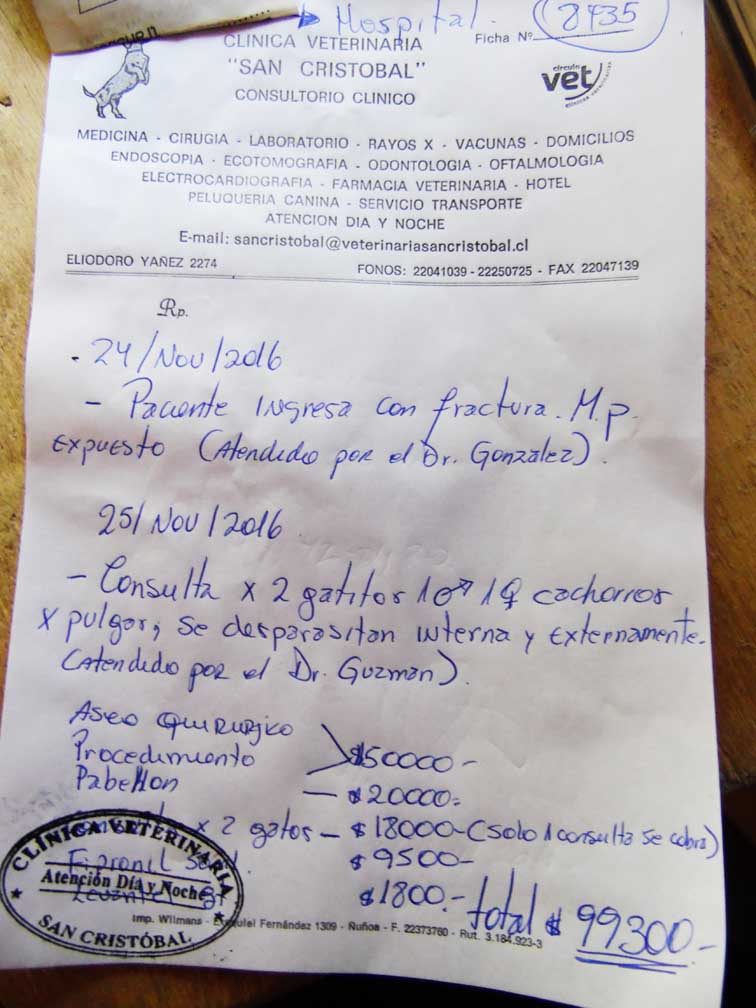 Hospital.
8435
CLINICA VETERINARIA
Ficha Nº
"SAN CRISTOBAL"
CONSULTORIO CLINICO
circulo
vet
MEDICINA - CIRUGIA - LABORATORIO - RAYOS X - VACUNAS - DOMICILIOS
ENDOSCOPIA - ECOTOMOGRAFIA - ODONTOLOGIA - OFTALMOLOGIA
ELECTROCARDIOGRAFIA - FARMACIA VETERINARIA - HOTEL
PELUQUERIA CANINA - SERVICIO TRANSPORTE
ATENCION DIA Y NOCHE
E-mail: sancristobal@veterinariasancristobal.cl
ELIODORO YAÑEZ 2274
FONOS: 22041039 - 22250725 - FAX 22047139
Rp.
24/Nov/2016
- Paciente Ingresa con fractura. M.p.
Expuesto (Atendido por el Dr. González).
25/Nov/2016
- Consulta x 2 gatitos 1♂ 1♀ cachorros
x pulgas, se desparasitan interna y externamente.
(Atendido por el Dr. Guzman).
Aseo Quirurgico
Procedimiento $50000-
Pabellon — $20000-
x 2 gatos - $18000- (solo 1 consulta se cobra)
Fipronil $9500-
$1800.- total $ 99300-
CLINICA VETERINARIA
Atención Día y Noche
SAN CRISTÓBAL
Imp. Wilmans - Fernández 1309 - Ñuñoa - F. 22373760 - Rut. 3.184.923-3